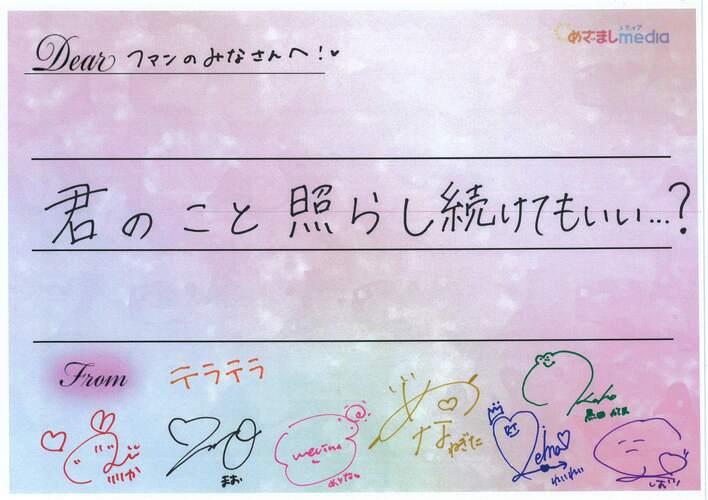 めざましmedia
メディア
Dear フマンのみなさんへ!♥
君のこと照らし続けてもいい…?
From テラテラ
まお
merina
めりな
ねぎた
黒田
れいれい
しおり